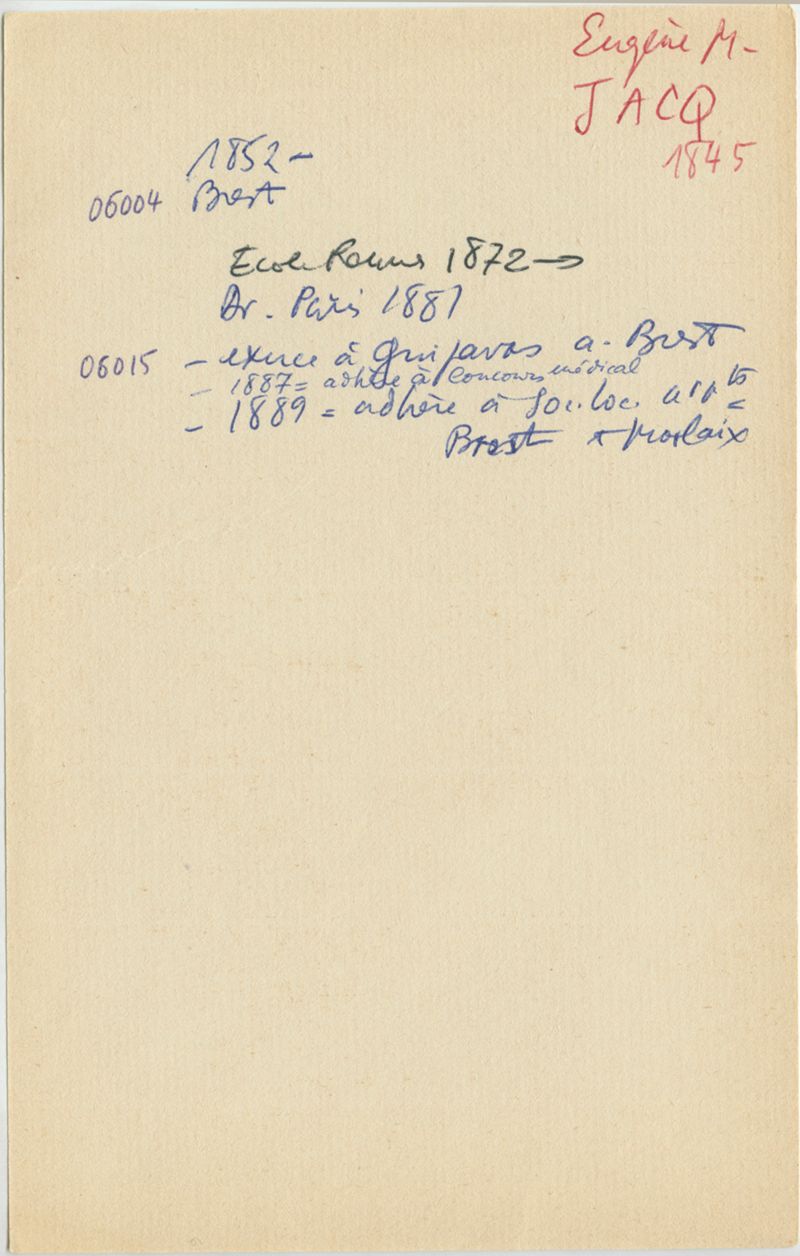 Eugène M-
JACQ
1845
1852 -
06004 Brest
Ecole Rennes 1872 →
Dr. Paris 1881
06015 - exerce à Guipavas a. Brest
- 1887 = adhère à Concours médical
- 1889 = adhère à Soc. loc. arrts
Brest + Morlaix